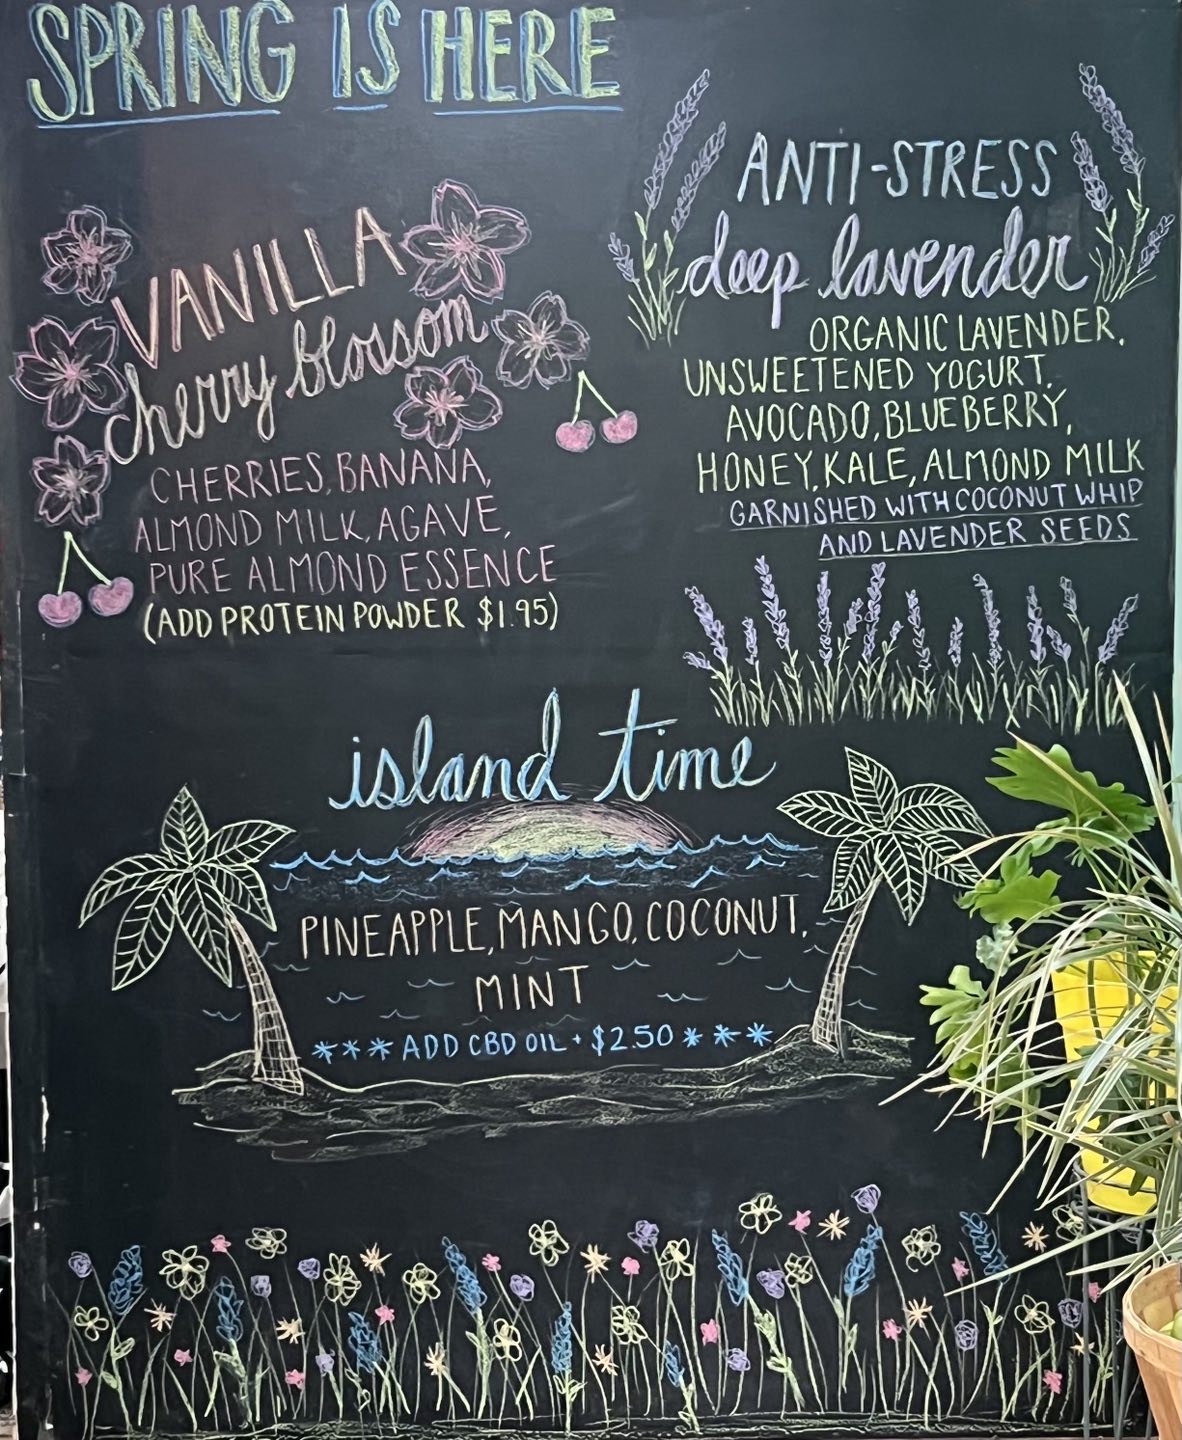 SPRING IS HERE
VANILLA
cherry blossom
CHERRIES, BANANA,
ALMOND MILK, AGAVE,
PURE ALMOND ESSENCE
(ADD PROTEIN POWDER $1.95)
ANTI-STRESS
deep lavender
ORGANIC LAVENDER,
UNSWEETENED YOGURT,
AVOCADO, BLUEBERRY,
HONEY, KALE, ALMOND MILK
GARNISHED WITH COCONUT WHIP
AND LAVENDER SEEDS
island time
PINEAPPLE, MANGO, COCONUT,
MINT
***ADD CBD OIL + $2.50***